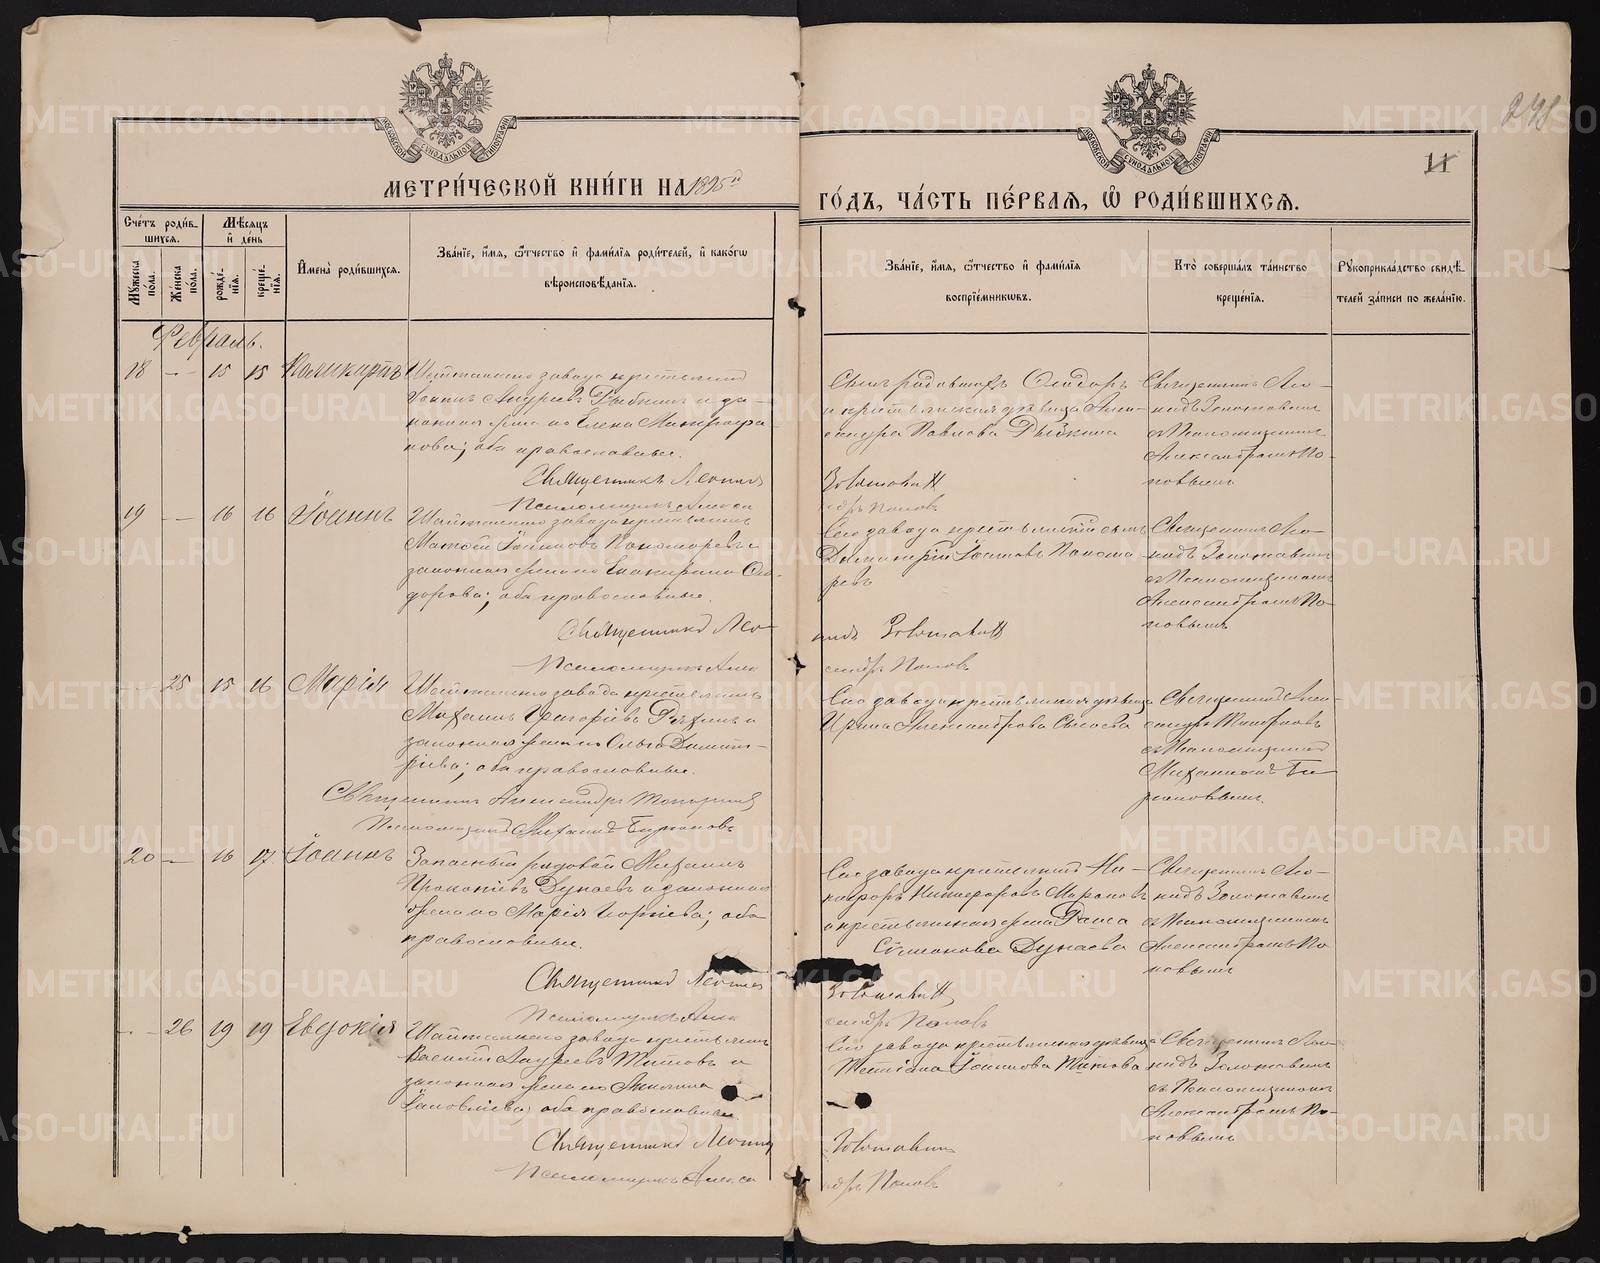 МЕТРИ́ЧЕСКОЙ КНИ́ГИ НА 1895й ГО́ДЪ, ЧА́СТЬ ПЕ́РВАЯ, Ѡ РОДИ́ВШИХСЯ.
11
Сче́тъ роди́в-
шихся.
Мѣ́сяцъ
и де́нь
Мꙋ́жеска по́ла.
Же́нска по́ла.
рожде́-
нїя.
креще́-
нїя.
И҆мена̀ роди́вшихся.
Зва́нїе, и҆́мя, ѻ҆́тчество и҆ фами́лїя роди́телей, и҆ како́гѡ
вѣроисповѣ́данїя.
Зва́нїе, и҆́мя, ѻ҆́тчество и҆ фами́лїя
воспрїе́мникѡвъ.
Кто̀ соверша́лъ та́инство
креще́нїя.
Рꙋкоприкла́дство свидѣ́-
телей за́писи по жела́нїю.
Февраль.
18 — 15 15 Поликарпъ
Шайтанскаго завода крестьянинъ
Іоаннъ Андреевъ Рыбкинъ и за-
конная жена его Елена Митрофа-
нова; оба православные.
Священникъ Леонидъ
Золотавинъ
Псаломщикъ Александръ Поповъ
и крестьянская дѣвица Алек-
сандра Павлова Рыбкина
Священникъ Лео-
нидъ Золотавинъ
съ Псаломщикомъ
Александромъ По-
повымъ
19 — 16 16 Іоаннъ
Шайтанскаго завода крестьянинъ
Матвей Іоанновъ Пономаревъ и
законная жена его Екатерина Ѳе-
дорова; оба православные.
Священникъ Лео-
нидъ Золотавинъ
Псаломщикъ Александръ Поповъ
Сего завода крестьянскій сынъ
Димитрій Іоанновъ Понома-
ревъ
Священникъ Лео-
нидъ Золотавинъ
съ Псаломщикомъ
Александромъ По-
повымъ
— 25 15 16 Марія
Шайтанскаго завода крестьянинъ
Михаилъ Григорьевъ и
законная жена его Ольга Димит-
ріева; оба православные.
Священникъ Александръ Топорковъ
Псаломщикъ Михаилъ Бирюковъ
Сего завода крестьянская дѣвица
Ирина Александрова Сысоева
Священникъ Алек-
сандръ Топорковъ
съ Псаломщикомъ
Михаиломъ Би-
рюковымъ.
20 — 16 17 Іоаннъ
Запасный рядовой Михаилъ
Прокопьевъ Дунаевъ и законная
жена его Марія Георгіева; оба
православные.
Священникъ Леонидъ
Золотавинъ
Псаломщикъ Александръ Поповъ
Сего завода крестьянинъ Ни-
каноръ Никифоровъ
и крестьянская жена Раиса
Стефанова Дунаева
Священникъ Лео-
нидъ Золотавинъ
съ Псаломщикомъ
Александромъ По-
повымъ
— 26 19 19 Евдокія
Шайтанскаго завода крестьянинъ
Василій Андреевъ Титовъ и
законная жена его Акилина
Іаковлева; оба православные.
Священникъ Леонидъ
Золотавинъ
Псаломщикъ Александръ Поповъ
Сего завода крестьянская дѣвица
Татіана Іоаннова Титова
Священникъ Лео-
нидъ Золотавинъ
съ Псаломщикомъ
Александромъ По-
повымъ
METRIKI.GASO-URAL.RU